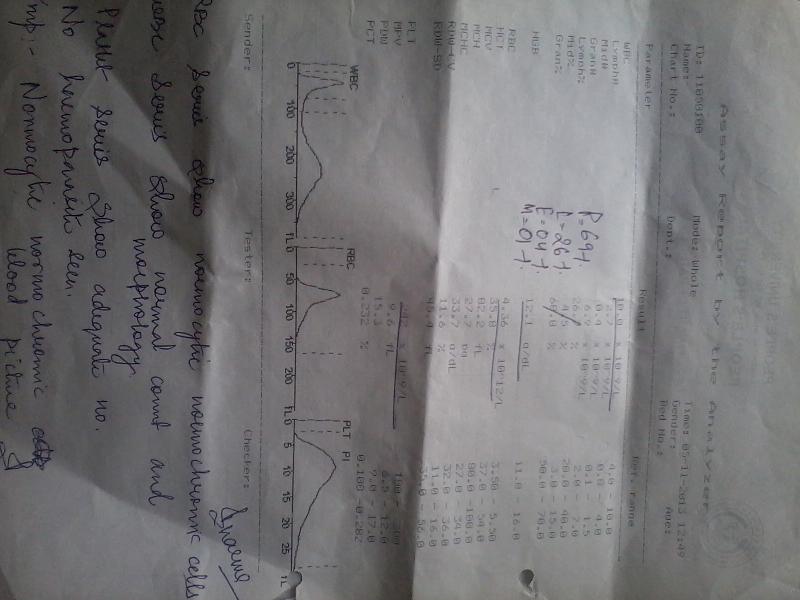 Assay Report by the Analyzer
ID: 11050100 Mode: Whole Time: 05-11-2013 12:49
Name: Gender: Age:
Chart No.: Dept.: Bed No.:
Parameter Result Ref. range
WBC 10.0 x 10^9/L 4.0 - 10.0
Lymph# 2.7 x 10^9/L
Mid# 0.4 x 10^9/L
Gran# 6.9 x 10^9/L 2.0 - 7.0
Lymph% % 20.0 - 40.0
Mid% 4.5 % 3.0 - 15.0
Gran% % 50.0 - 70.0
P = 69%
L = 26%
E = 04%
M = 01%
HGB 12.1 g/dL 11.0 - 16.0
RBC 4.36 x 10^12/L 3.50 - 5.50
HCT 35.8 % 37.0 - 54.0
MCV 82.2 fL 80.0 - 100.0
MCH 27.7 pg 27.0 - 34.0
MCHC 33.7 g/dL 32.0 - 36.0
RDW-CV 11.6 % 11.0 - 16.0
RDW-SD fL 35.0 - 56.0
PLT x 10^9/L
MPV 9.6 fL 6.5 - 12.0
PDW 15.3 9.0 - 17.0
PCT 0.232 % 0.108 - 0.282
WBC RBC PLT
0 100 200 300 fL 0 50 100 150 200 fL 0 5 10 15 20 25 fL
Sender: Tester: Checker:
RBC series show normocytic normochromic cells
series show normal count and
morphology.
series show adequate no.
No haemoparasite seen.
Imp:- Normocytic normochromic
blood picture